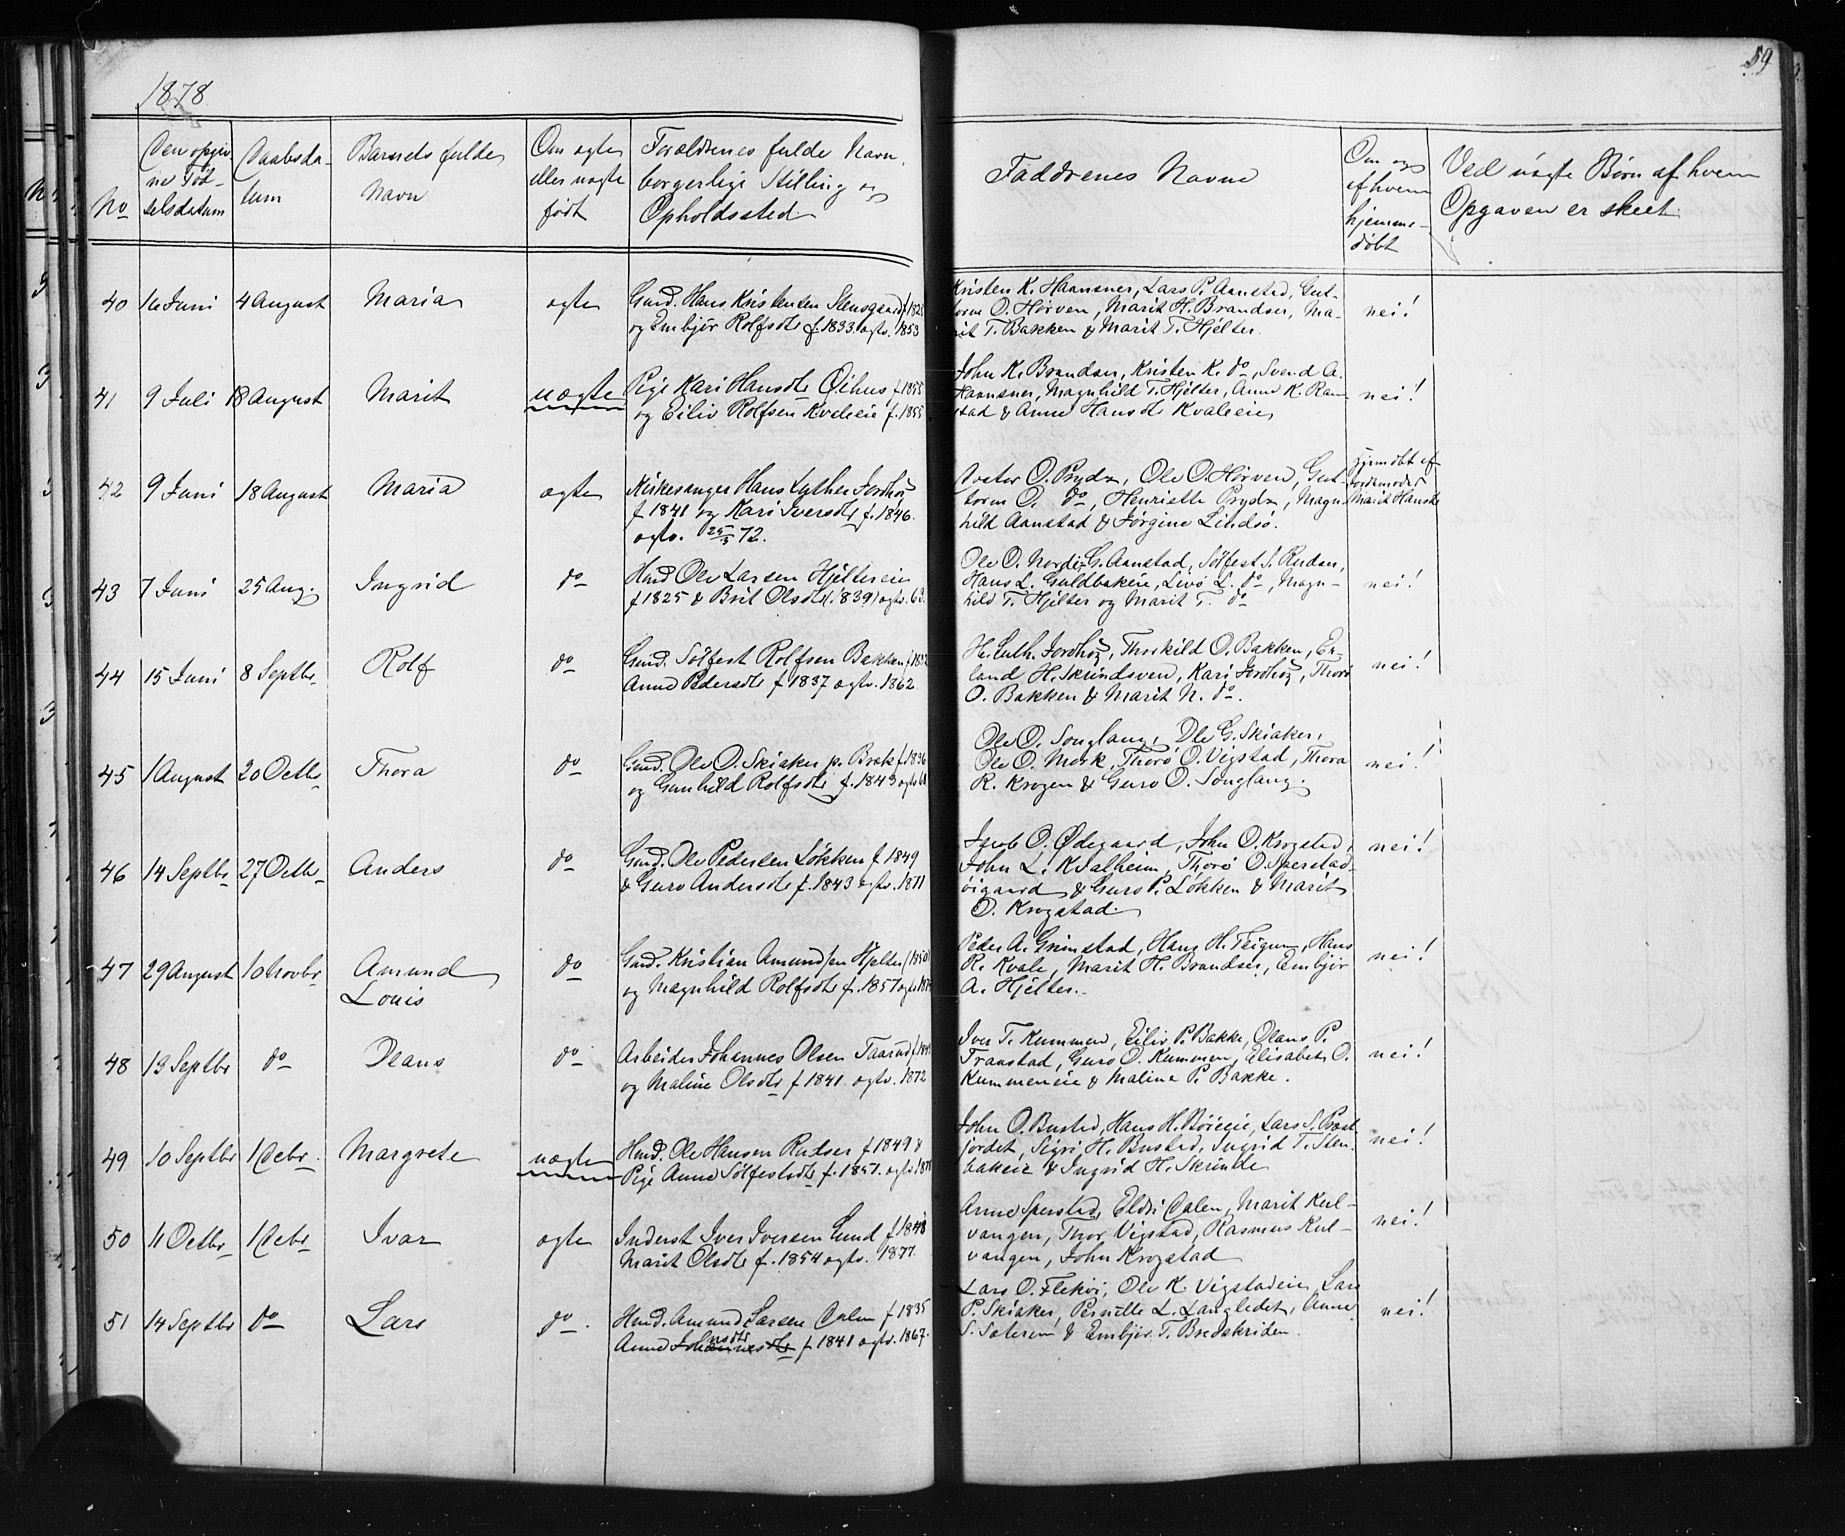 59
1878
No
Den opgiv-
ne Fød-
selsdatum
Daabsda-
tum
Barnets fulde
Navn
Om ægte
eller uægte
født
Forældrenes fulde Navn,
borgerlige Stilling og
Opholdssted
Faddrenes Navne
Om og
af hvem
hjemme-
døbt
Ved uægte Børn af hvem
Opgaven er skeet
40 16 Juni 4 August Maria ægte
Gmd. Hans Kristensen Stensgaard f 1825
og Embjør Rolfsdtr f. 1833 ægtv. 1853
Kristen K. Haansner, Lars P. Aanstad, Gut-
torm O. Hørven, Marit H. Brandser, Ma-
rit T. Bakken & Marit T. Hjelter.
nei!
41 9 Juli 18 August Marit uægte
Pige Kari Hansdtr Øihus f. 1855
og Eiliv Rolfsen Kvaleeie f. 1855
John K. Brandser, Kristen K. do, Svend A.
Haansner, Magnhild T. Hjelter, Anne K. Ram-
stad & Anne Hansdtr Kvaleeie
nei!
42 9 Juni 18 August Maria ægte
Kirkesanger Hans Luther Jordhøy
f 1841 og Kari Iversdtr f. 1846.
ægtv. 25/3 72.
O. Prydz, Ole O. Hørven, Gut-
torm O. do, Henriette Prydz, Magn-
hild Aanstad & Jørgine Lindsø.
Hjemdøbt af
Jordemoder
Marit Hansdtr
43 7 Juni 25 Aug. Ingrid do
Hmd Ole Larsen Hjeltereie
f 1825 & Brit Olsdtr (1839) ægtv. 63.
Ole O. Nordi G. Aanstad, Sølfest S. Rudser,
Hans L. Guldbakeie, Livø L. do, Magn-
hild T. Hjelter og Marit T. do
nei!
44 15 Juni 8 Septbr Rolf do
Gmd. Sølfest Rolfsen Bakken f 1832
Anne Pedersdtr f 1837 ægtv. 1862
H. Luth. Jordhøy, Thorkild O. Bakken, Er-
land H. Skrindsven, Kari Jordhøy, Thorø
O. Bakken & Marit N. do.
nei!
45 1 August 20 Octbr Thora do
Gmd. Ole O. Skiaker p. Bræk f. 1836
og Gunhild Rolfsdtr f. 1843 ægtv 6
Ole O. Songlang, Ole G. Skiaker,
Ole O. Mork, Thorø O. Vigstad, Thora
R. Krogen & Guro O. Songlang.
nei!
46 14 Septbr 27 Octbr Anders do
Gmd. Ole Pedersen Løkken f 1849
& Guro Andersdtr f. 1843 ægtv. 1871
Jacob O. Ødegaard, John O. Krogstad,
John L. Kjalheim, Thorø O. Sperstad-
øigaard & Guro P. Løkken & Marit
O. Krogstad
nei!
47 29 August 10 Novbr Amund
Louis do
Gmd. Kristian Amundsen Hjelter (1850)
og Magnhild Rolfsdtr f. 1857 ægtv 18
Peder A. Grimstad, Hans H. Teigum, Hans
R. Kvale, Marit H. Brandser, Embjør
A. Hjelter.
nei!
48 13 Septbr do Olaus do
Arbeider Johannes Olsen Taarud f.
og Maline Olsdtr f 1841. ægtv. 1872
Iver T. Kummen, Eiliv P. Bakke, Olaus P.
Transtad, Guro O. Kummen, Elisabet O.
Kummeneie & Malina P. Bakke.
nei!
49 10 Septbr 1 Decbr Margrete uægte
Hmd. Ole Hansen Rudser f 1849 &
Pige Anne Sølfestsdtr f. 1851. ægtv 18
John O. Bustad, Hans H. Bøieeie, Lars S. Præst-
jordet, Sigri H. Bustad, Ingrid T. Sten-
bakeie & Ingrid H. Skrinde
nei!
50 11 Octbr 1 Decbr Ivar ægte
Inderst Iver Iversen Lund f 1848
Marit Olsdtr f. 1854 ægtv. 1877.
Anne Sperstad, Eldri Dalen, Marit Kul-
vangen, Thor Vigstad, Rasmus Kul-
vangen, John Krogstad
nei!
51 14 Septbr do Lars do.
Hmd. Amund Larsen Dalen f 1835
Anne Johannesdtr f 1841 ægtv. 1867.
Lars O. Flekøi, Ole K. Vigstadeie, Lars
P. Skiaker, Pernille L. Langledet, Anne
S. Solerem & Embjør T. Bredskriden.
nei!